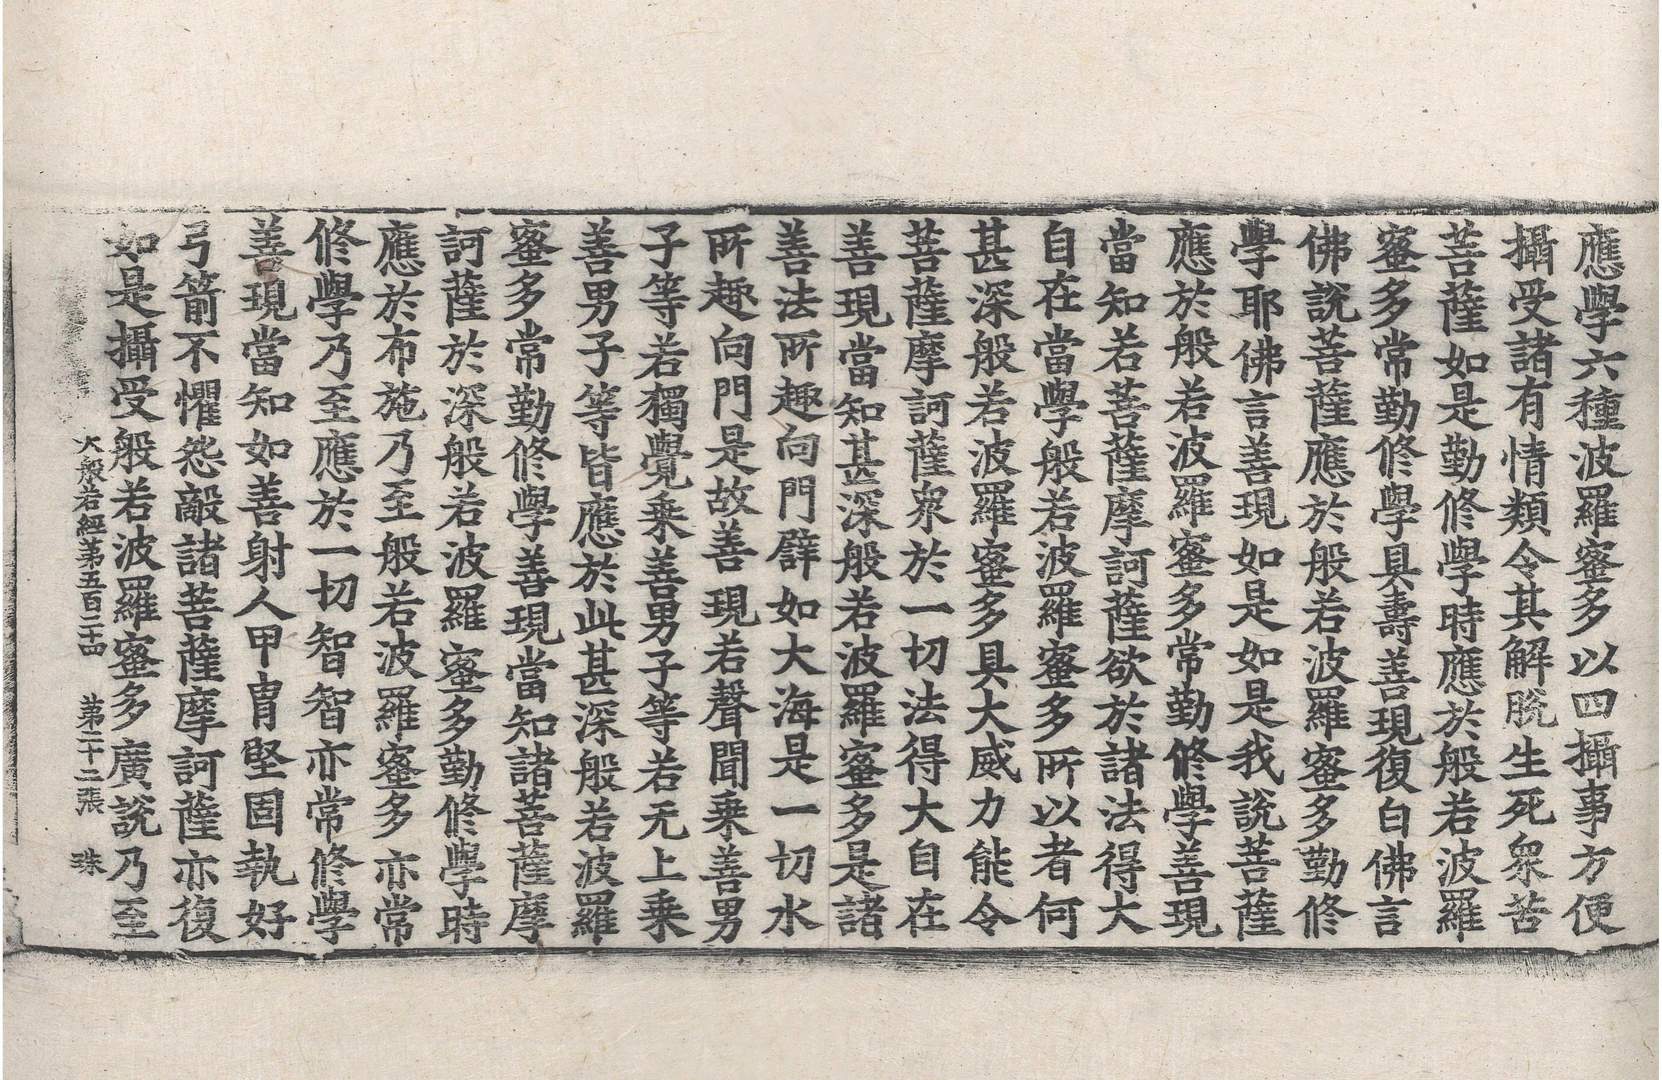 應學六種波羅蜜多以四攝事方便
攝受諸有情類令其解脫生死衆苦
菩薩如是勤修學時應於般若波羅
蜜多常勤修學具壽善現復白佛言
佛說菩薩應於般若波羅蜜多勤修
學耶佛言善現如是如是我說菩薩
應於般若波羅蜜多常勤修學善現
當知若菩薩摩訶薩欲於諸法得大
自在當學般若波羅蜜多所以者何
甚深般若波羅蜜多具大威力能令
菩薩摩訶薩衆於一切法得大自在
善現當知甚深般若波羅蜜多是諸
善法所趣向門譬如大海是一切水
所趣向門是故善現若聲聞乘善男
子等若獨覺乘善男子等若无上乘
善男子等皆應於此甚深般若波羅
蜜多常勤修學善現當知諸菩薩摩
訶薩於深般若波羅蜜多勤修學時
應於布施乃至般若波羅蜜多亦常
修學乃至應於一切智智亦常修學
善現當知如善射人甲冑堅固執好
弓箭不懼怨敵諸菩薩摩訶薩亦復
如是攝受般若波羅蜜多廣說乃至
大般若經第五百二十四 第二十二張 珠